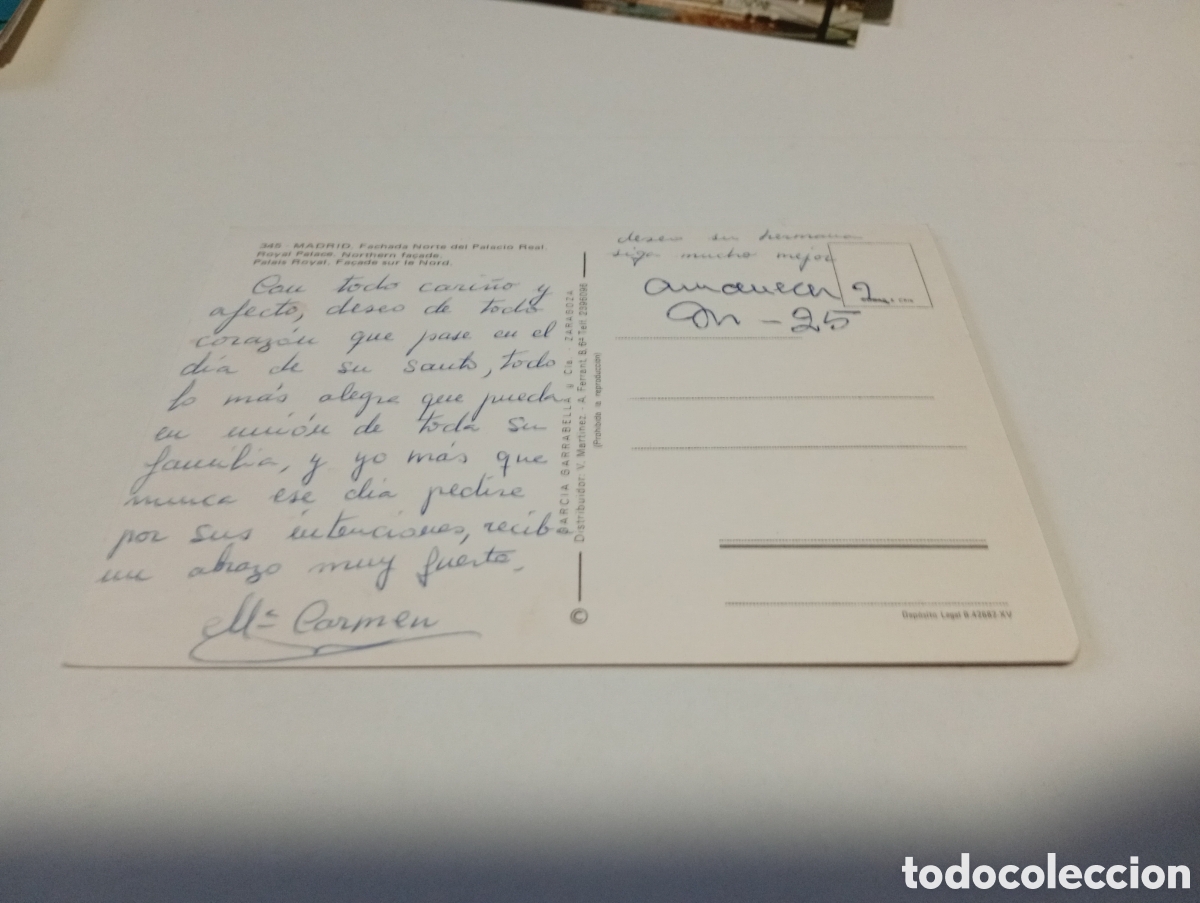 345 - MADRID. Fachada Norte del Palacio Real.
Royal Palace. Northern façade.
Palais Royal. Façade sur le Nord.
Con todo cariño y
afecto, deseo de todo
corazón que pase en el
día de su santo, todo
lo más alegre que pueda
en unión de toda su
familia, y yo más que
nunca ese día pedire
por sus intenciones, reciba
un abrazo muy fuerte.
Mª Carmen
© GARCIA GARRABELLA y Cía. - ZARAGOZA
Distribuidor: V. Martinez - A. Ferrant, 8, 6º Telf. 2396096
(Prohibida la reproducción)
deseo su hermana
siga mucho mejor
amanecer 2
m - 25
Depósito Legal B. 42682-XV
todocoleccion